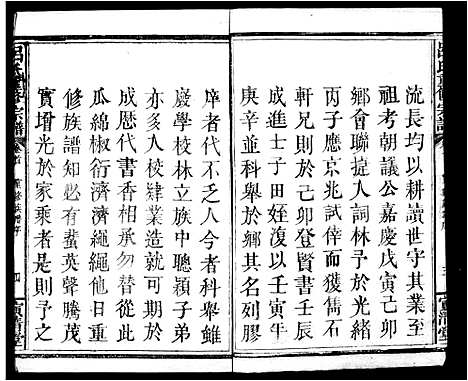 流長均以耕讀世守其業至
祖考朝議公嘉慶戊寅己卯
鄉會聯捷入詞林予於光緒
丙子應京兆試倖而獲雋石
軒兄則於己卯登賢書壬辰
成進士子田姪復以壬寅年
庚辛並科舉於鄉其名列膠
庠者代不乏人今者科舉雖
廢學校林立族中聰穎子弟
亦多入校肄業造就人材將
成歷代書香相承勿替從此
瓜綿椒衍濟濟繩繩他日重
修族譜知必有蜚英騰茂
實增光於家乘者是則予之